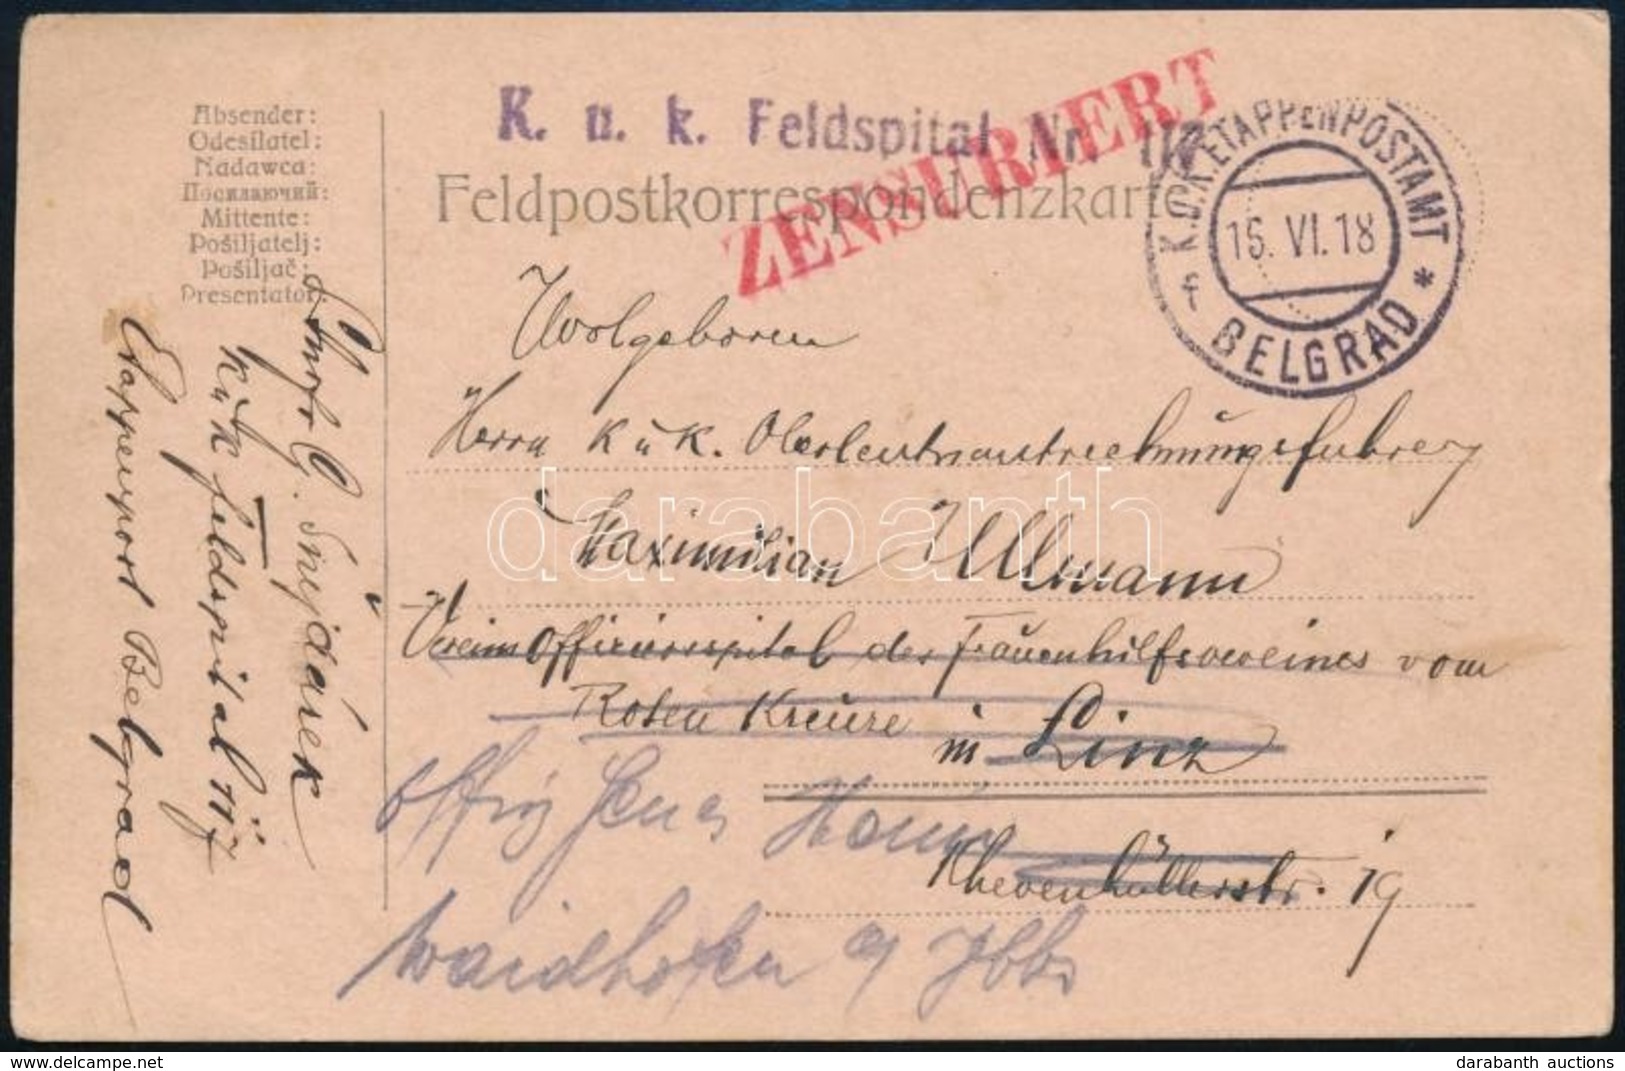 K. u. k. Feldspital Nr.
ZENSURIERT
K.U.K. ETAPPENPOSTAMT
15. VI. 18
f BELGRAD *
Absender:
Odesílatel:
Nadawca:
Посилаючий:
Mittente:
Pošiljatelj:
Pošiljač:
Presentator:
Feldpostkorrespondenzkarte
Wolgeboren
Herrn K u K.
Maximilian Ullmann
Vereins Offizierspital des Frauenhilfsvereines vom
Roten Kreuze in Linz
Khevenhüllerstr. 19
Waidhofen a/ Ybbs
K u K feldspital
Etappenpost Belgrad
darabanth
www.delcampe.net
darabanth auctions